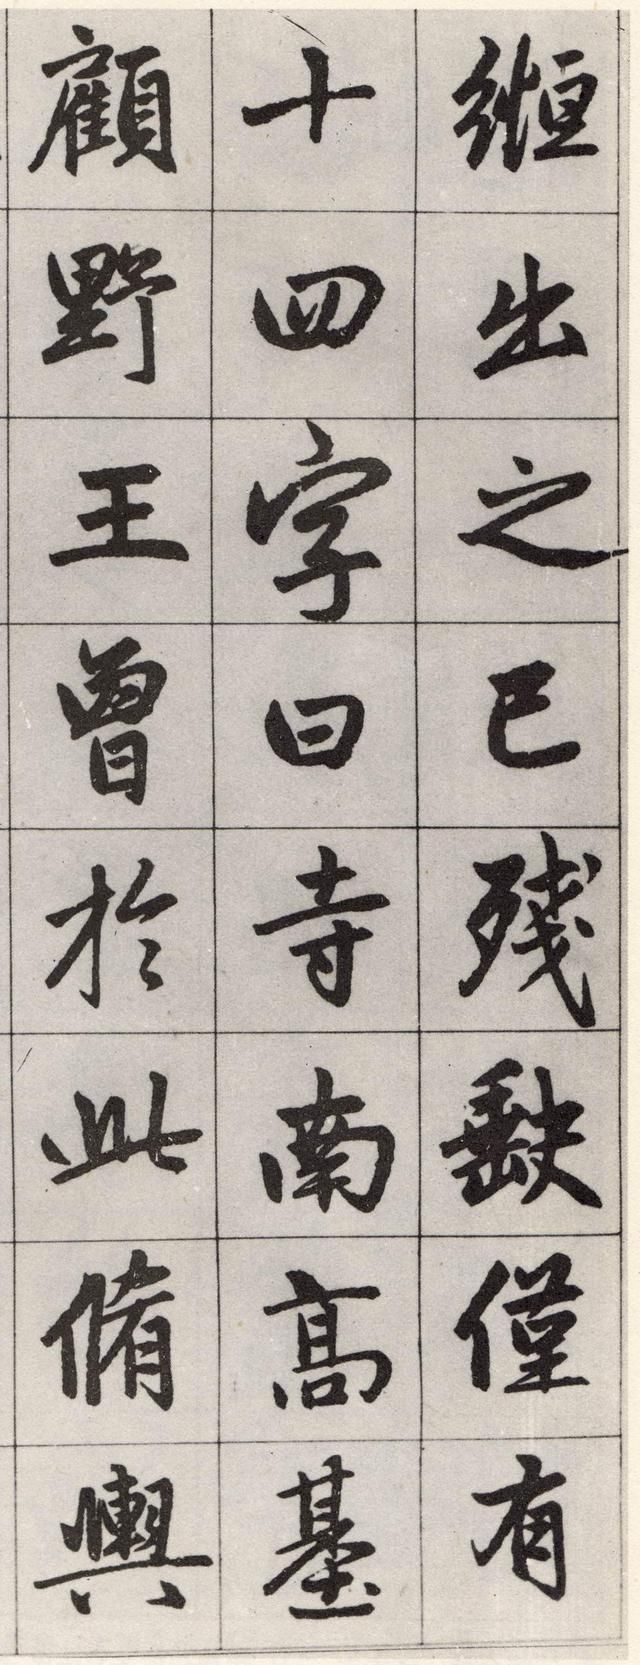 緪出之已殘缺僅有
十四字曰寺南高基
顧野王曾於此脩輿